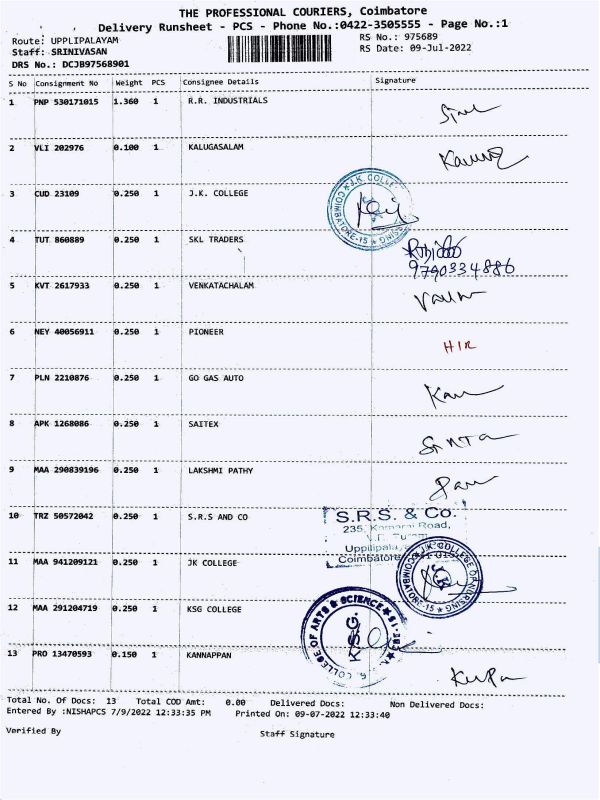 THE PROFESSIONAL COURIERS, Coimbatore
Delivery Runsheet - PCS - Phone No.:0422-3505555 - Page No.:1
Route: UPPLIPALAYAM RS No.: 975689
Staff: SRINIVASAN RS Date: 09-Jul-2022
DRS No.: DCJB97568901
S No Consignment No Weight PCS Consignee Details Signature
1 PNP 530171015 1.360 1 R.R. INDUSTRIALS
2 VLI 202976 0.100 1 KALUGASALAM
3 CUD 23109 0.250 1 J.K. COLLEGE
J.K. COLLEGE COIMBATORE-15
4 TUT 860889 0.250 1 SKL TRADERS
9790334886
5 KVT 2617933 0.250 1 VENKATACHALAM
6 NEY 40056911 0.250 1 PIONEER
HIR
7 PLN 2210876 0.250 1 GO GAS AUTO
8 APK 1268086 0.250 1 SAITEX
9 MAA 290839196 0.250 1 LAKSHMI PATHY
10 TRZ 50572042 0.250 1 S.R.S AND CO
S.R.S. & Co.
235, Road,
Coimbatore
11 MAA 941209121 0.250 1 JK COLLEGE
J.K. COLLEGE OF NURSING COIMBATORE-15
12 MAA 291204719 0.250 1 KSG COLLEGE
K.S.G. COLLEGE OF ARTS & SCIENCE
13 PRO 13470593 0.150 1 KANNAPPAN
Total No. Of Docs: 13 Total COD Amt: 0.00 Delivered Docs: Non Delivered Docs:
Entered By :NISHAPCS 7/9/2022 12:33:35 PM Printed On: 09-07-2022 12:33:40
Verified By Staff Signature